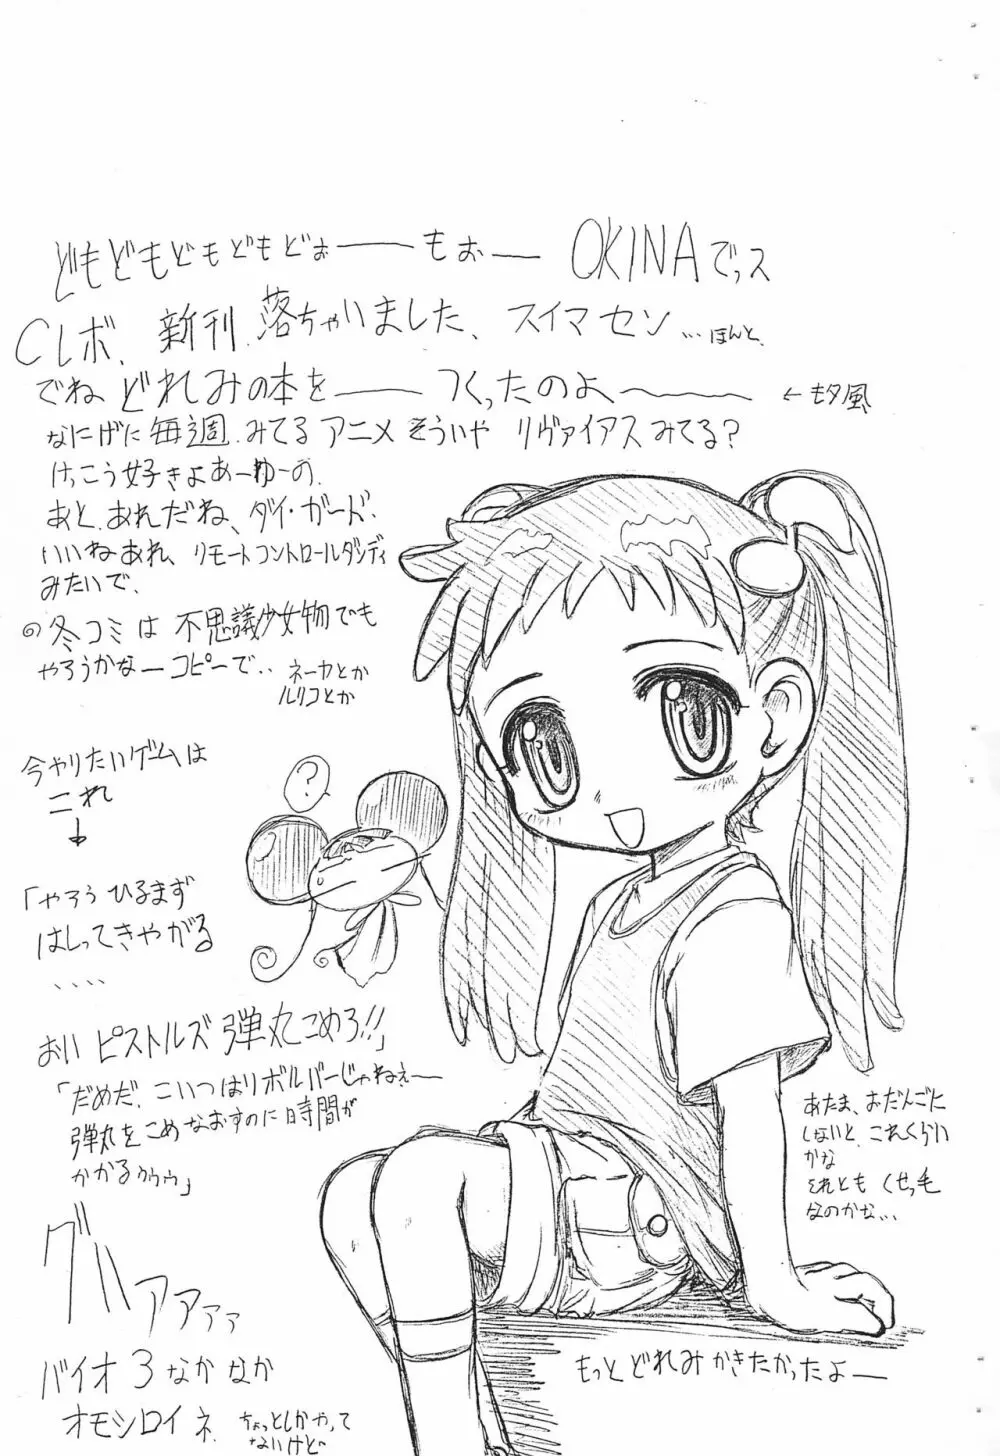 どもどもどもどもどぉーーもぉー OKINAでっス
CLボ、新刊、落ちゃいました、スイマセン…ほんと、
でね、どれみの本をーー つくったのよ〜〜〜 ←もタ風
なにげに毎週、みてるアニメ そういや リヴァイアスみてる?
けっこう好きよあーゆーの、
あと、あれだね、ダイ・ガード、
いいねあれ、リモートコントロールダンディ
みたいで、
の冬コミは 不思議少女物でも
やろうかなーコピーで‥ ネーヤとか
ルリコとか
今やりたいゲームは
これ
↓
?
「やろう ひるまず
はしってきやがる
、、、、
おい ピストルズ 弾丸こめろ!!」
「だめだ、こいつはリボルバーじゃねぇー
弾丸をこめなおすのに時間が
かかるゥゥゥ」
グハァァァァ
バイオ3 なかなか
オモシロイネ ちょっとしかやって
ないけど〜
あたま、おだんごに
しないと、これくらい
かな
それとも くせっ毛
なのかな、、、
もっと どれみ かきたかったよー